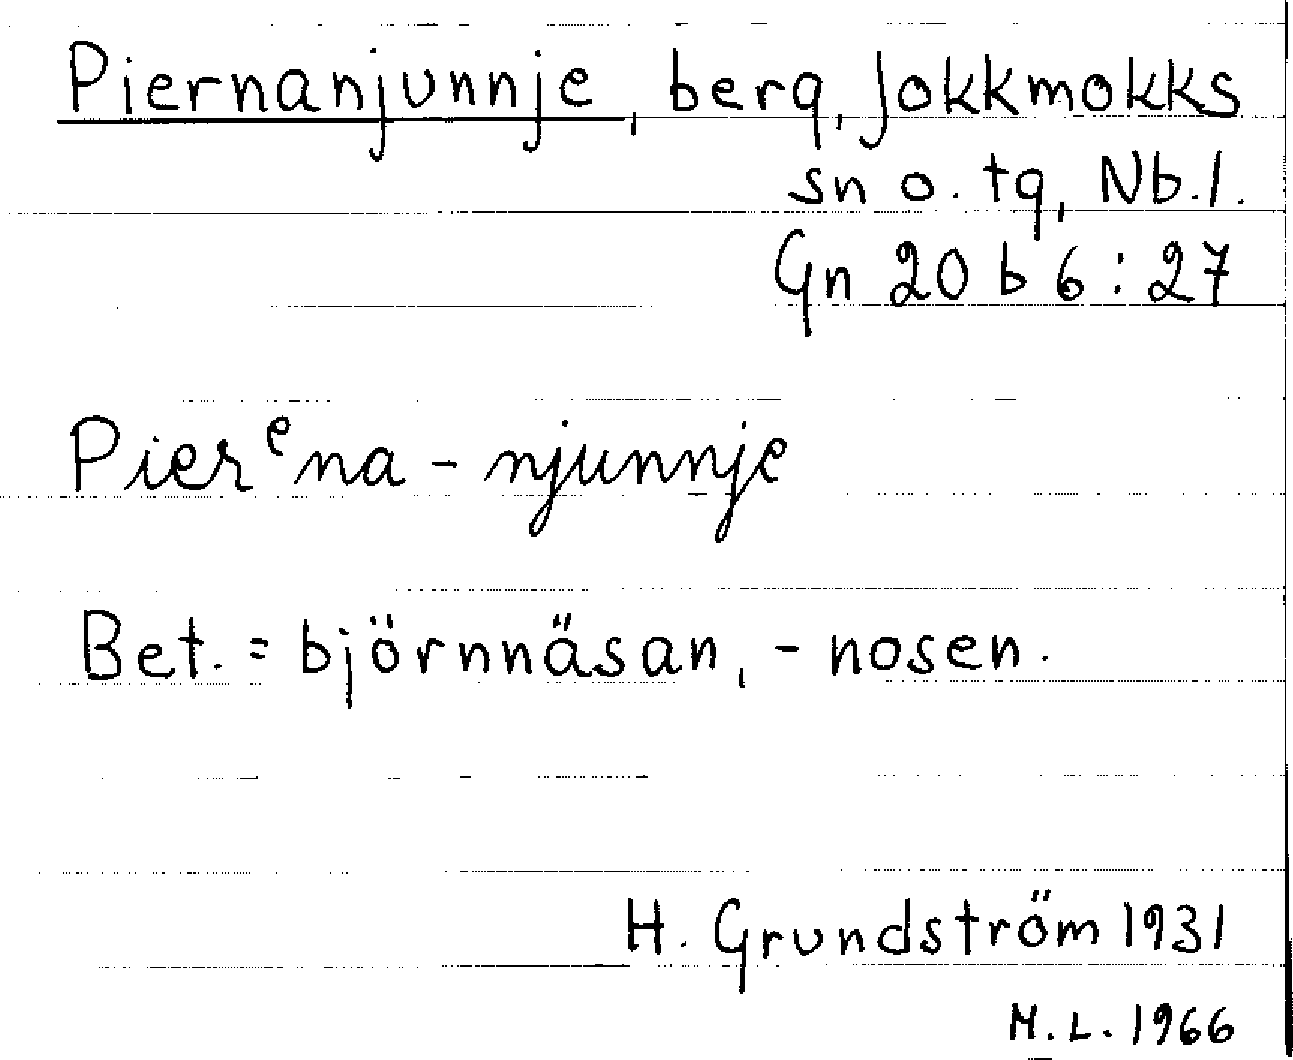 Piernanjunnje, berg, Jokkmokks
sn o. tg, Nb.l.
Gn 20 b 6:27
Pierᵉna-njunnje
Bet. = björnnäsan, -nosen.
H. Grundström 1931
M.L. 1966